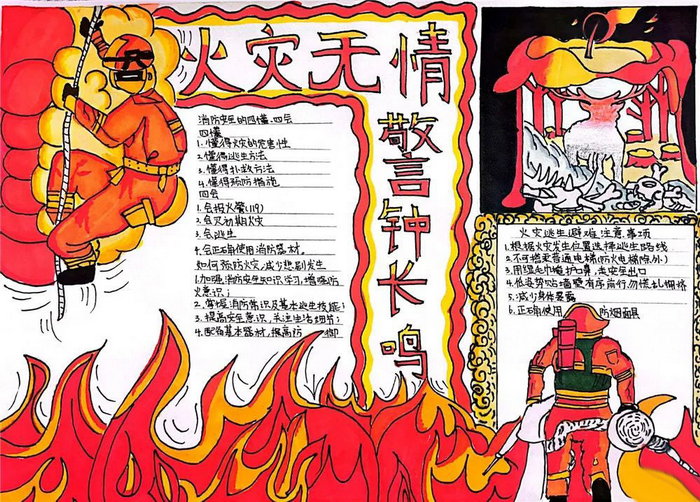 火灾无情
警言钟长鸣
消防安全的四懂、四会
四懂
1.懂得火灾的危害性
2.懂得逃生方法
3.懂得扑救方法
4.懂得预防措施
四会
1.会报火警(119)
2.会灭初期火灾
3.会逃生
4.会正确使用消防器材。
如何预防火灾,减少悲剧发生
1.加强消防安全知识学习,增强防
火意识;
2.掌握消防常识及基本逃生技能;
3.提高安全意识,关注生活细节;
4.配备基本器材,提高防
火灾逃生避难注意事项
1.根据火灾发生位置选择逃生路线
2.不可搭乘普通电梯(防火电梯除外)
3.用湿毛巾掩护口鼻,走安全出口
4.低姿势贴墙壁有序前行,勿慌乱拥挤
5.减少身体暴露
6.正确使用 防烟面具